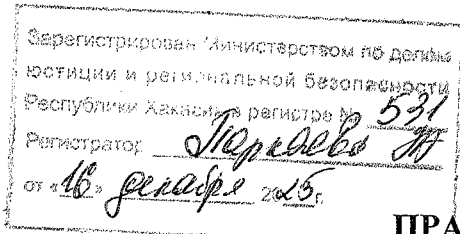 Зарегистрирован Министерством по делам
юстиции и региональной безопасности
Республики Хакасия в регистре № 531
Регистратор
от «16» декабря 2025г.
ПРА